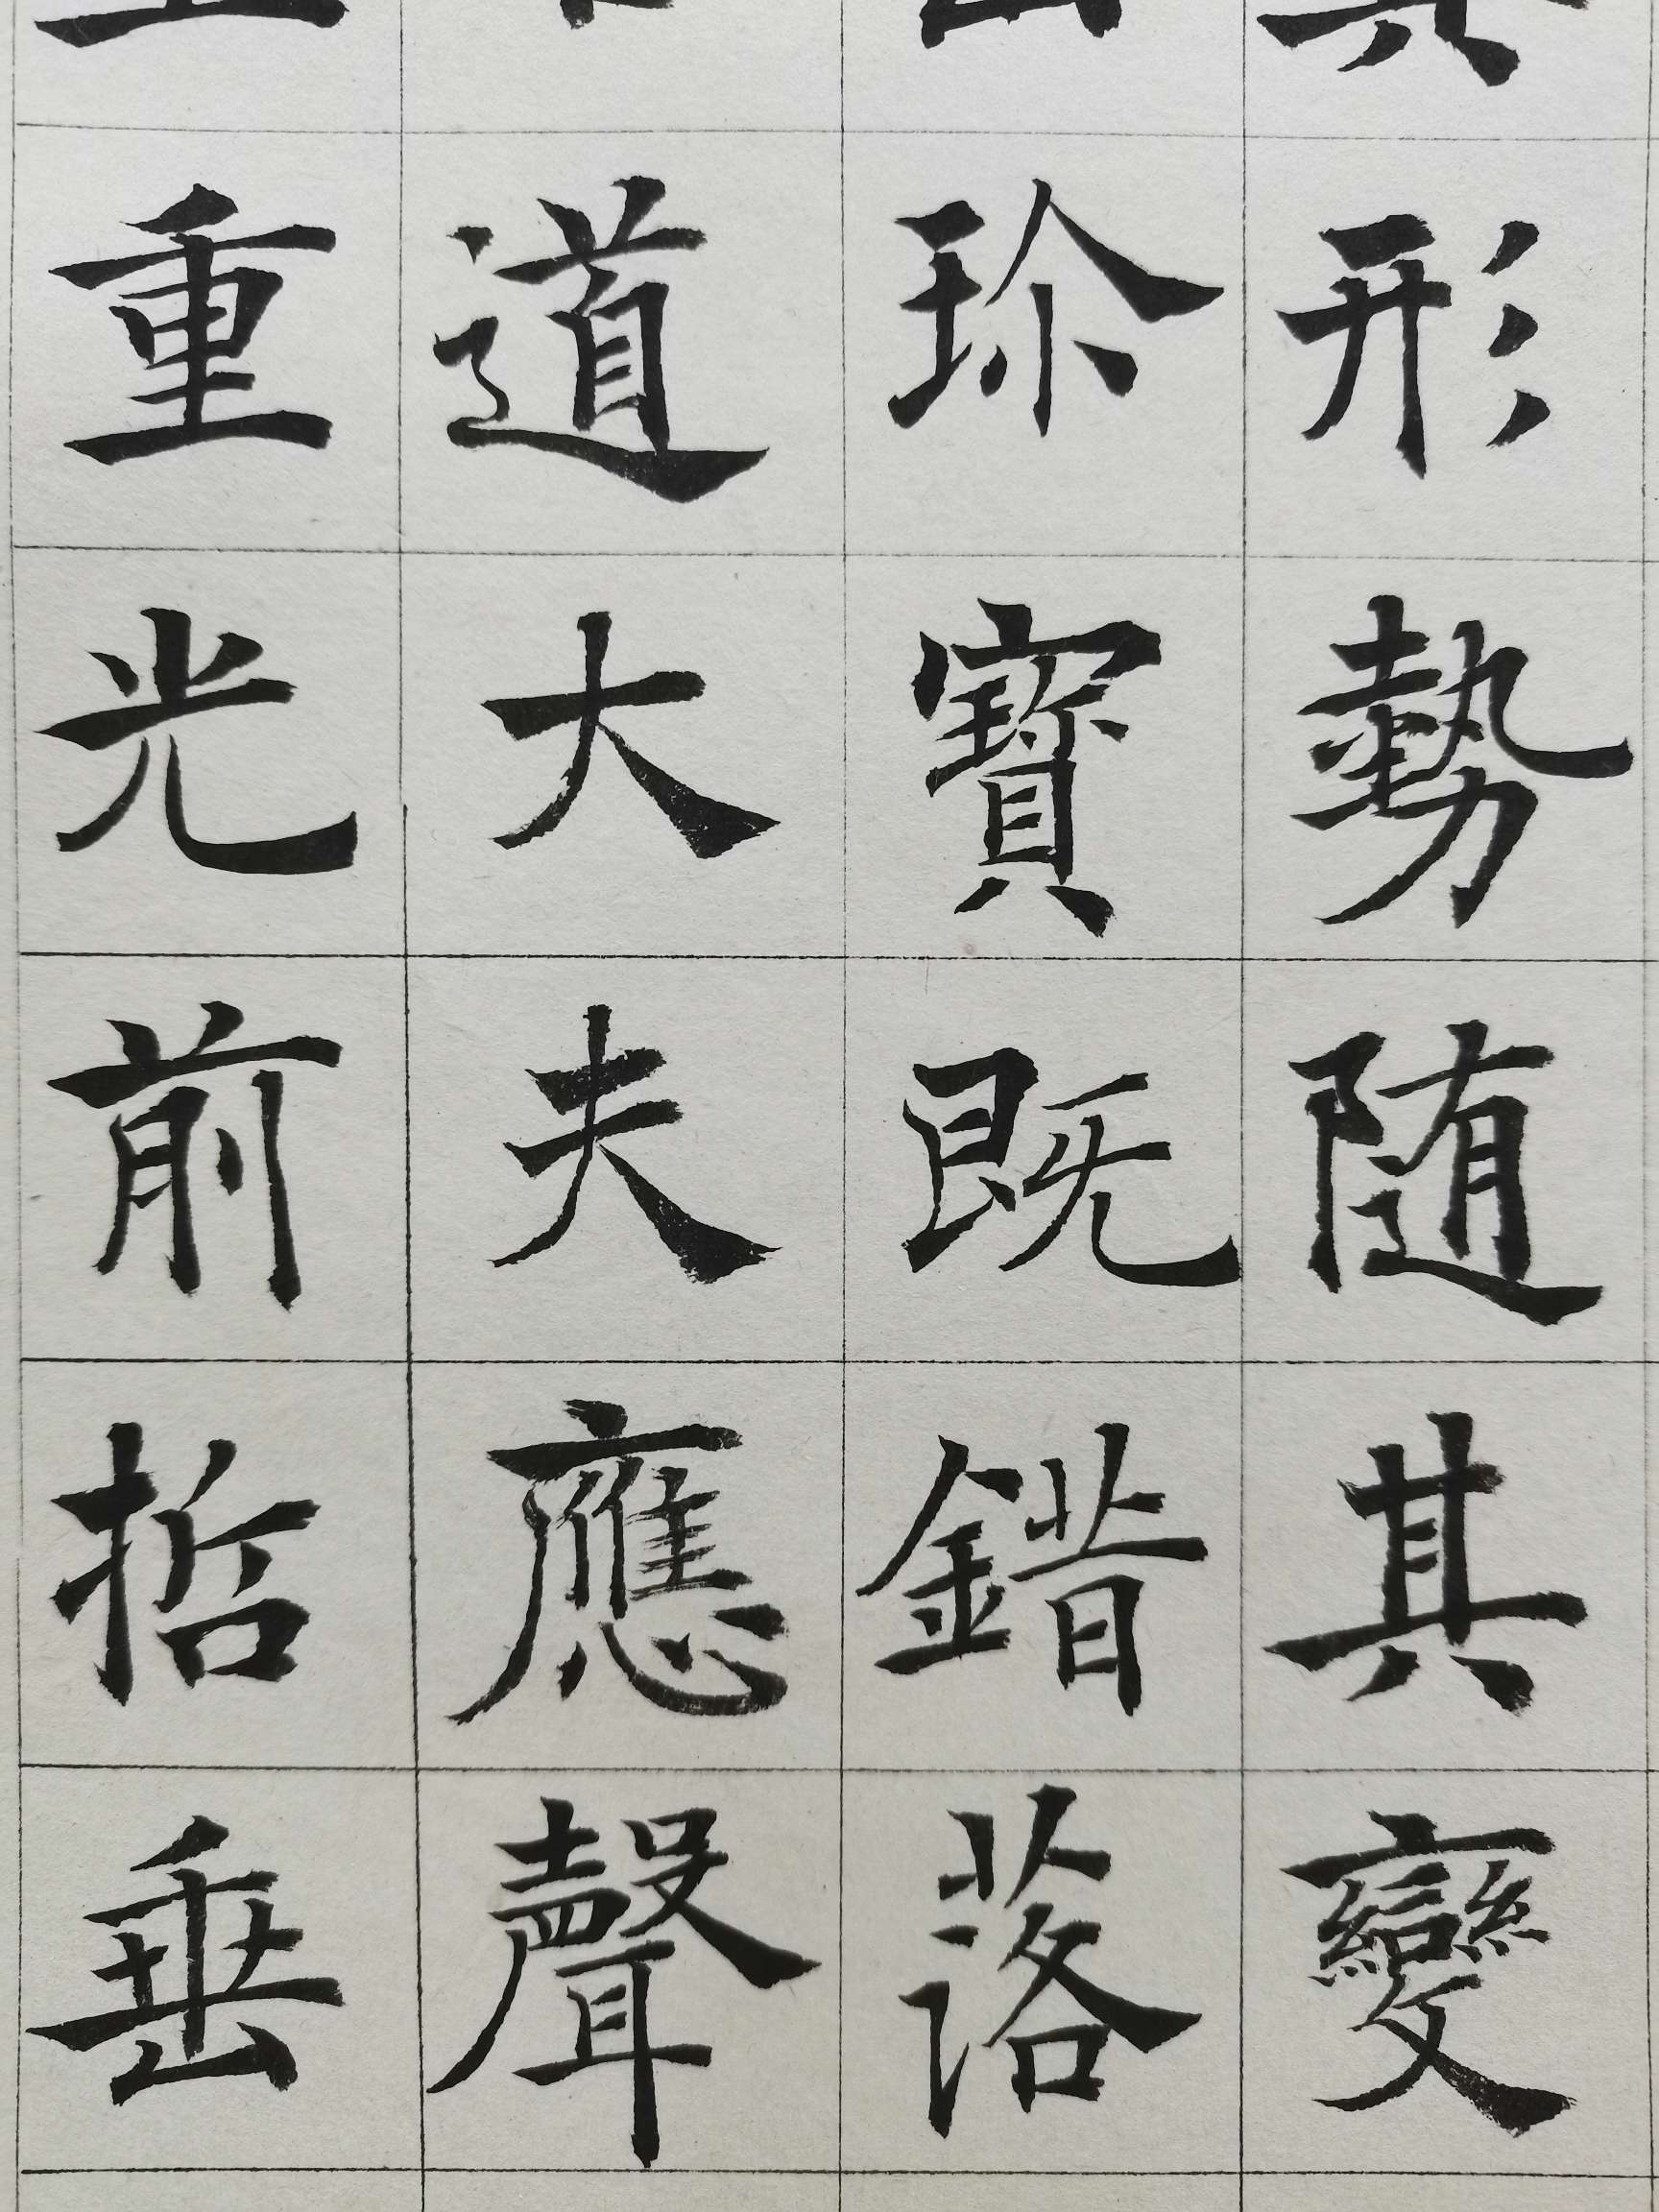 形勢随其變
珎寶既錯落
道大夫應聲
重光前哲垂